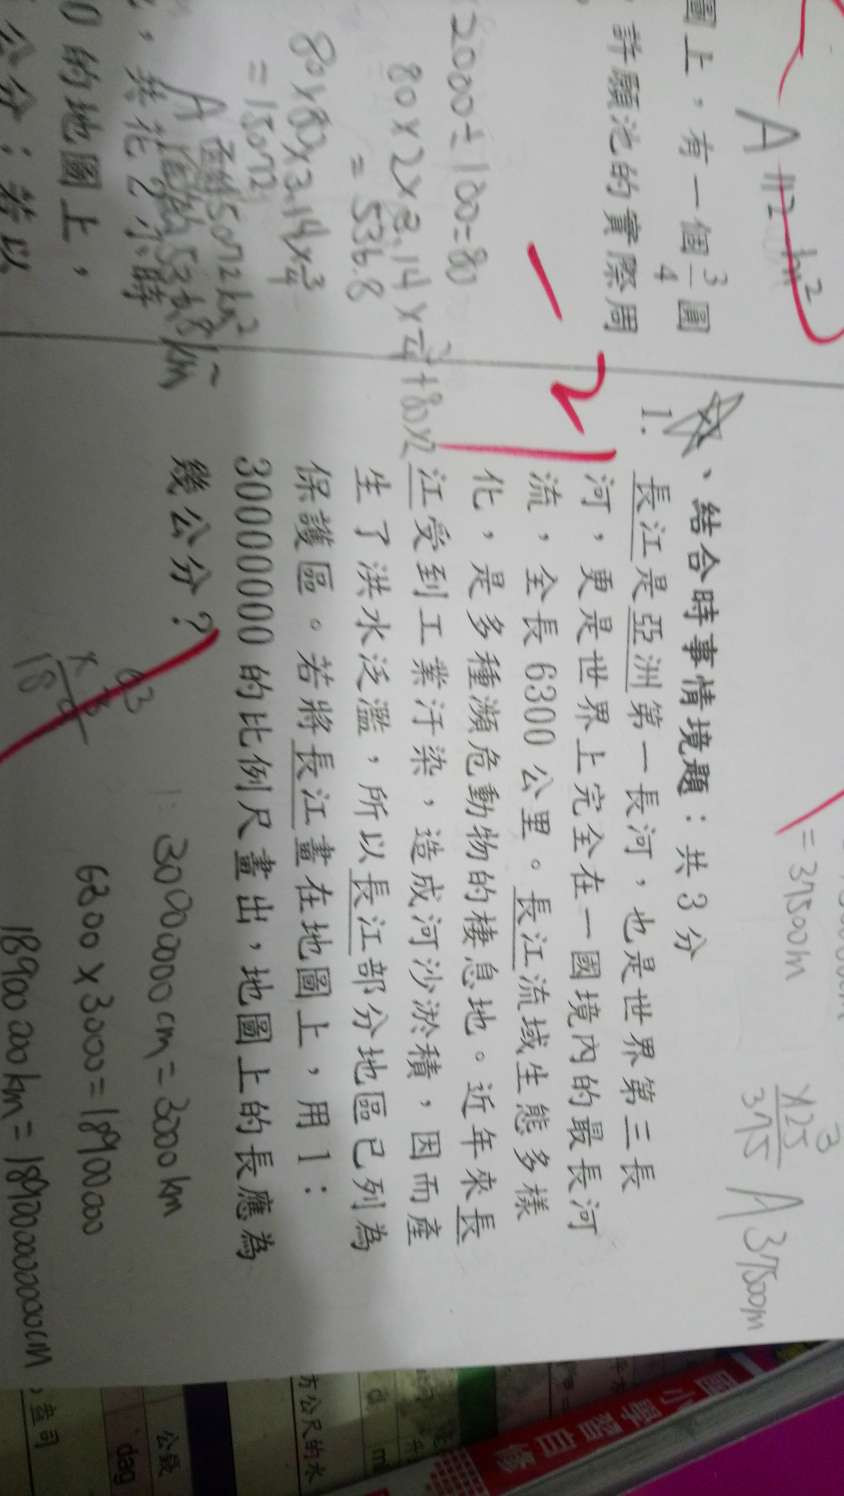 圖上，有一個3/4圓
許願池的實際周
80×2×3.14×3/4+80×2
=536.8
80×80×3.14×3/4
=15072
，共花2小時
0的地圖上，
公分；若以
=37500m
×25
375
A 37500m
、結合時事情境題：共3分
1. 長江是亞洲第一長河，也是世界第三長
河，更是世界上完全在一國境內的最長河
流，全長6300公里。長江流域生態多樣
化，是多種瀕危動物的棲息地。近年來長
江受到工業汙染，造成河沙淤積，因而產
生了洪水泛濫，所以長江部分地區已列為
保護區。若將長江畫在地圖上，用1：
30000000的比例尺畫出，地圖上的長應為
幾公分？
63
×3
18
1:30000000cm=3000km
6300×3000=18900000
18900000km=1890000000000cm
國小學習自修
方公尺的水
公數
dag